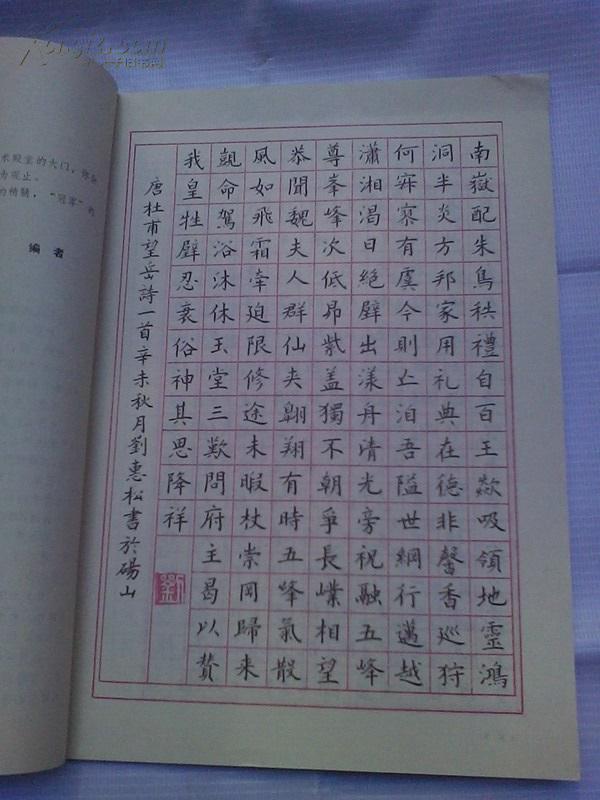 南嶽配朱鳥秩禮自百王歘吸領地靈鴻
洞半炎方邦家用礼典在德非馨香巡狩
何寐寞有虞今則亡洎吾隘世網行邁越
瀟湘渴日絕壁出漾舟清光旁祝融五峰
尊峯峰次低昂紫蓋獨不朝爭長嶫相望
恭聞魏夫人群仙夾翱翔有時五峰氣散
風如飛霜牽迫限修途未暇杖崇岡歸来
覬命駕浴沐休玉堂三歎問府主曷以贊
我皇牲璧忍衰俗神其思降祥
唐杜甫望岳詩一首辛未秋月劉惠松書於碭山
劉
术殿堂的大门，你
为观止。
的精髓，“冠军”的
编 者